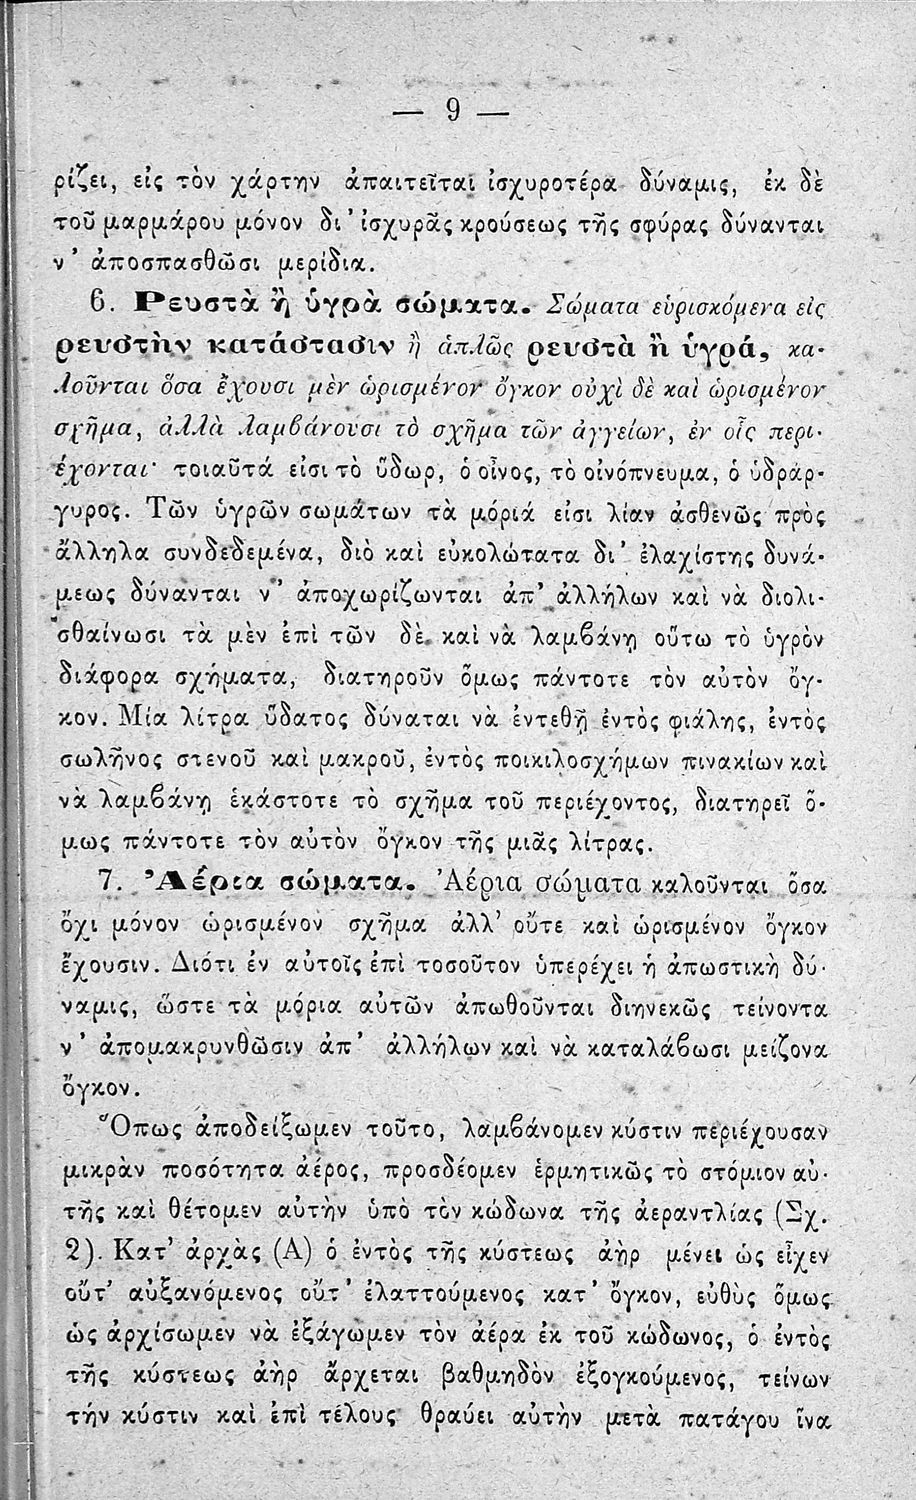 — 9 —
ρίζει, εἰς τὸν χάρτην ἀπαιτεῖται ἰσχυροτέρα δύναμις, ἐκ δὲ
τοῦ μαρμάρου μόνον δι' ἰσχυρᾶς κρούσεως τῆς σφύρας δύνανται
ν' ἀποσπασθῶσι μερίδια.
6. Ρευστὰ ἢ ὑγρὰ σώματα. Σώματα εὑρισκόμενα εἰς
ρευστὴν κατάστασιν ἢ ἁπλῶς ρευστὰ ἢ ὑγρά, κα-
λοῦνται ὅσα ἔχουσι μὲν ὡρισμένον ὄγκον οὐχὶ δὲ καὶ ὡρισμένον
σχῆμα, ἀλλὰ λαμβάνουσι τὸ σχῆμα τῶν ἀγγείων, ἐν οἷς περι-
έχονται· τοιαῦτά εἰσι τὸ ὕδωρ, ὁ οἶνος, τὸ οἰνόπνευμα, ὁ ὑδράρ-
γυρος. Τῶν ὑγρῶν σωμάτων τὰ μόριά εἰσι λίαν ἀσθενῶς πρὸς
ἄλληλα συνδεδεμένα, διὸ καὶ εὐκολώτατα δι' ἐλαχίστης δυνά-
μεως δύνανται ν' ἀποχωρίζωνται ἀπ' ἀλλήλων καὶ νὰ διολι-
σθαίνωσι τὰ μὲν ἐπὶ τῶν δὲ καὶ νὰ λαμβάνῃ οὕτω τὸ ὑγρὸν
διάφορα σχήματα, διατηροῦν ὅμως πάντοτε τὸν αὐτὸν ὄγ-
κον. Μία λίτρα ὕδατος δύναται νὰ ἐντεθῇ ἐντὸς φιάλης, ἐντὸς
σωλῆνος στενοῦ καὶ μακροῦ, ἐντὸς ποικιλοσχήμων πινακίων καὶ
νὰ λαμβάνῃ ἑκάστοτε τὸ σχῆμα τοῦ περιέχοντος, διατηρεῖ ὅ-
μως πάντοτε τὸν αὐτὸν ὄγκον τῆς μιᾶς λίτρας.
7. Ἀέρια σώματα. Ἀέρια σώματα καλοῦνται ὅσα
ὄχι μόνον ὡρισμένον σχῆμα ἀλλ' οὔτε καὶ ὡρισμένον ὄγκον
ἔχουσιν. Διότι ἐν αὐτοῖς ἐπὶ τοσοῦτον ὑπερέχει ἡ ἀπωστικὴ δύ-
ναμις, ὥστε τὰ μόρια αὐτῶν ἀπωθοῦνται διηνεκῶς τείνοντα
ν' ἀπομακρυνθῶσιν ἀπ' ἀλλήλων καὶ νὰ καταλάβωσι μείζονα
ὄγκον.
Ὅπως ἀποδείξωμεν τοῦτο, λαμβάνομεν κύστιν περιέχουσαν
μικρὰν ποσότητα ἀέρος, προσδέομεν ἑρμητικῶς τὸ στόμιον αὐ-
τῆς καὶ θέτομεν αὐτὴν ὑπὸ τὸν κώδωνα τῆς ἀεραντλίας (Σχ.
2). Κατ' ἀρχὰς (Α) ὁ ἐντὸς τῆς κύστεως ἀὴρ μένει ὡς εἶχεν
οὔτ' αὐξανόμενος οὔτ' ἐλαττούμενος κατ' ὄγκον, εὐθὺς ὅμως
ὡς ἀρχίσωμεν νὰ ἐξάγωμεν τὸν ἀέρα ἐκ τοῦ κώδωνος, ὁ ἐντὸς
τῆς κύστεως ἀὴρ ἄρχεται βαθμηδὸν ἐξογκούμενος, τείνων
τήν κύστιν καὶ ἐπὶ τέλους θραύει αὐτὴν μετὰ πατάγου ἵνα